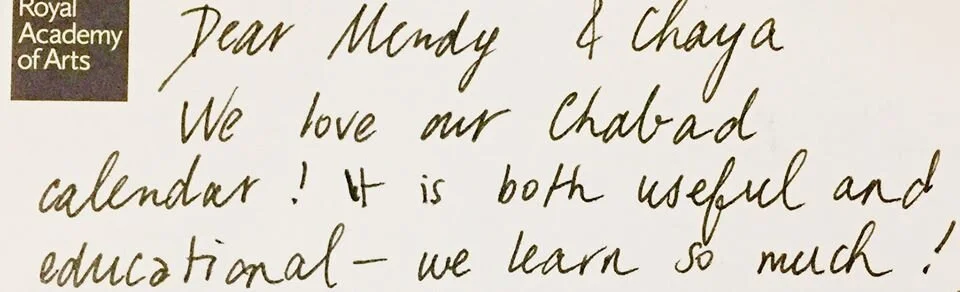 Royal
Academy
of Arts
Dear Mendy & Chaya
We love our Chabad
calendar! It is both useful and
educational – we learn so much!